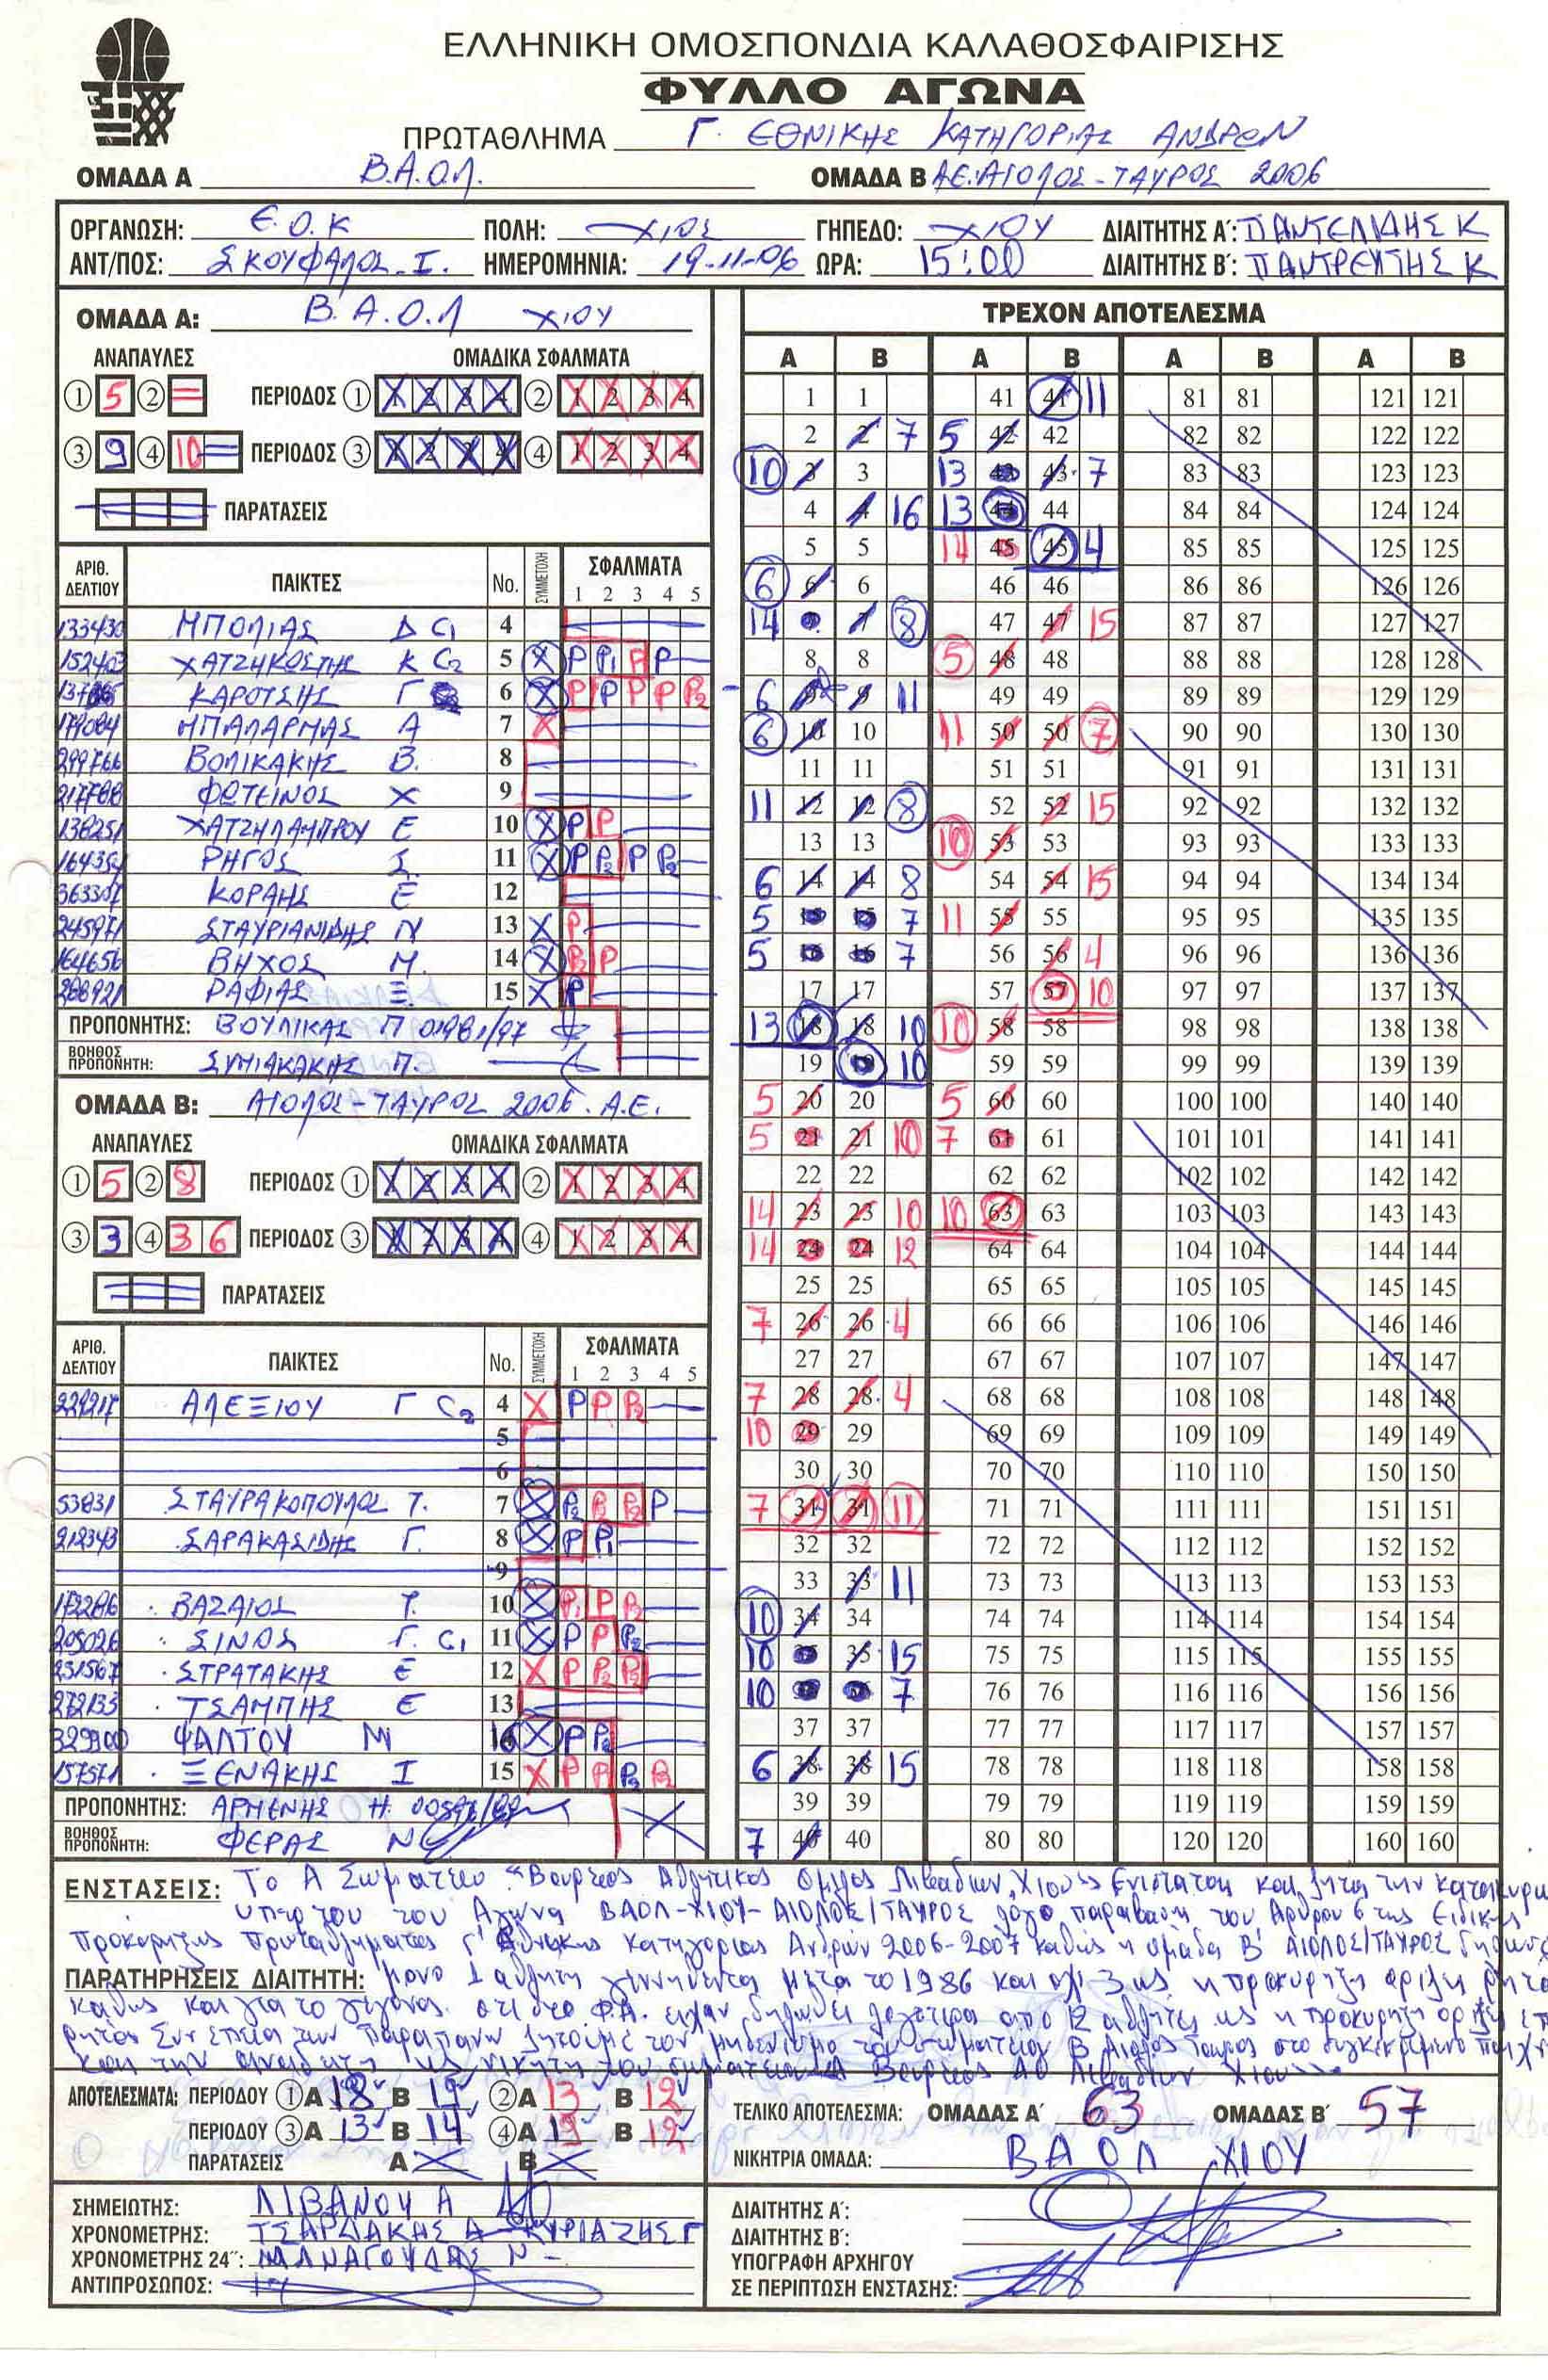 ΕΛΛΗΝΙΚΗ ΟΜΟΣΠΟΝΔΙΑ ΚΑΛΑΘΟΣΦΑΙΡΙΣΗΣ
ΦΥΛΛΟ ΑΓΩΝΑ
ΠΡΩΤΑΘΛΗΜΑ Γ. ΕΘΝΙΚΗΣ ΚΑΤΗΓΟΡΙΑΣ ΑΝΔΡΩΝ
ΟΜΑΔΑ Α Β.Α.Ο.Λ. ΟΜΑΔΑ Β ΑΕ.ΑΙΟΛΟΣ-ΤΑΥΡΟΣ 2006
ΟΡΓΑΝΩΣΗ: Ε.Ο.Κ ΠΟΛΗ: ΧΙΟΣ ΓΗΠΕΔΟ: ΧΙΟΥ ΔΙΑΙΤΗΤΗΣ Α΄: ΠΑΝΤΕΛΙΔΗΣ Κ
ΑΝΤ/ΠΟΣ: ΣΚΟΥΦΑΛΟΣ Ι. ΗΜΕΡΟΜΗΝΙΑ: 19-11-06 ΩΡΑ: 15:00 ΔΙΑΙΤΗΤΗΣ Β΄: ΠΑΝΤΡΕΥΤΗΣ Κ
ΟΜΑΔΑ Α: Β.Α.Ο.Λ ΧΙΟΥ
ΑΝΑΠΑΥΛΕΣ ΟΜΑΔΙΚΑ ΣΦΑΛΜΑΤΑ
① 5 ② = ΠΕΡΙΟΔΟΣ ① 1 2 3 4 ② 1 2 3 4
③ 9 ④ 10 = ΠΕΡΙΟΔΟΣ ③ 1 2 3 4 ④ 1 2 3 4
ΠΑΡΑΤΑΣΕΙΣ
ΑΡΙΘ. ΔΕΛΤΙΟΥ ΠΑΙΚΤΕΣ No. ΣΥΜΜΕΤΟΧΗ ΣΦΑΛΜΑΤΑ 1 2 3 4 5
133430 ΜΠΟΛΙΑΣ Δ C1 4
152403 ΧΑΤΖΗΚΩΣΤΗΣ Κ C2 5 X P P1 P P
ΚΑΡΟΤΣΗΣ Γ 6 X P P P P P2
179084 ΜΠΑΛΑΡΜΑΣ Α 7 X
299766 ΒΟΛΙΚΑΚΗΣ Β. 8
217788 ΦΩΤΕΙΝΟΣ Χ 9
138251 ΧΑΤΖΗΛΑΜΠΡΟΥ Ε 10 X P P
164354 ΡΗΓΟΣ Σ. 11 X P P2 P P2
363307 ΚΟΡΑΗΣ Ε 12
245971 ΣΤΑΥΡΙΑΝΙΔΗΣ Ν 13 X P
164656 ΒΗΧΟΣ Μ. 14 X P2 P
288921 ΡΑΦΙΑΣ Ξ. 15 X P
ΠΡΟΠΟΝΗΤΗΣ: ΒΟΥΛΙΚΑΣ Π 01981/97
ΒΟΗΘΟΣ ΠΡΟΠΟΝΗΤΗ: ΣΥΜΙΑΚΑΚΗΣ Π.
ΟΜΑΔΑ Β: ΑΙΟΛΟΣ-ΤΑΥΡΟΣ 2006 Α.Ε.
ΑΝΑΠΑΥΛΕΣ ΟΜΑΔΙΚΑ ΣΦΑΛΜΑΤΑ
① 5 ② 8 ΠΕΡΙΟΔΟΣ ① 1 2 3 4 ② 1 2 3 4
③ 3 ④ 3 6 ΠΕΡΙΟΔΟΣ ③ 1 2 3 4 ④ 1 2 3 4
ΠΑΡΑΤΑΣΕΙΣ
ΑΡΙΘ. ΔΕΛΤΙΟΥ ΠΑΙΚΤΕΣ No. ΣΥΜΜΕΤΟΧΗ ΣΦΑΛΜΑΤΑ 1 2 3 4 5
229217 ΑΛΕΞΙΟΥ Γ C2 4 X P P P2
5
6
53831 ΣΤΑΥΡΑΚΟΠΟΥΛΟΣ Τ. 7 X P2 P P2 P
212343 ΣΑΡΑΚΑΣΙΔΗΣ Γ. 8 X P P1
9
172286 ΒΑΖΑΙΟΣ Τ. 10 X P1 P P2
205026 ΣΙΝΟΣ Γ. C1 11 X P P P2
251567 ΣΤΡΑΤΑΚΗΣ Ε 12 X P P2 P2
272133 ΤΣΑΜΠΗΣ Ε 13
329900 ΨΑΛΤΟΥ Μ 16 X P P2
157571 ΞΕΝΑΚΗΣ Ι 15 X P P P2 P2
ΠΡΟΠΟΝΗΤΗΣ: ΑΡΜΕΝΗΣ Η.
ΒΟΗΘΟΣ ΠΡΟΠΟΝΗΤΗ: ΦΕΡΑΣ Ν
ΤΡΕΧΟΝ ΑΠΟΤΕΛΕΣΜΑ
Α Β Α Β Α Β Α Β
1 1 41 41 11 81 81 121 121
2 2 7 5 42 42 82 82 122 122
10 3 3 13 43 43 7 83 83 123 123
4 4 16 13 44 44 84 84 124 124
5 5 14 45 45 4 85 85 125 125
6 6 6 46 46 86 86 126 126
14 7 7 8 47 47 15 87 87 127 127
8 8 5 48 48 88 88 128 128
6 9 9 11 49 49 89 89 129 129
6 10 10 11 50 50 7 90 90 130 130
11 11 51 51 91 91 131 131
11 12 12 8 52 52 15 92 92 132 132
13 13 10 53 53 93 93 133 133
6 14 14 8 54 54 15 94 94 134 134
5 15 15 7 11 55 55 95 95 135 135
5 16 16 7 56 56 4 96 96 136 136
17 17 57 57 10 97 97 137 137
13 18 18 10 10 58 58 98 98 138 138
19 19 10 59 59 99 99 139 139
5 20 20 5 60 60 100 100 140 140
5 21 21 10 7 61 61 101 101 141 141
22 22 62 62 102 102 142 142
14 23 23 10 10 63 63 103 103 143 143
14 24 24 12 64 64 104 104 144 144
25 25 65 65 105 105 145 145
7 26 26 4 66 66 106 106 146 146
27 27 67 67 107 107 147 147
7 28 28 4 68 68 108 108 148 148
10 29 29 69 69 109 109 149 149
30 30 70 70 110 110 150 150
7 31 31 11 71 71 111 111 151 151
32 32 72 72 112 112 152 152
33 33 11 73 73 113 113 153 153
10 34 34 74 74 114 114 154 154
10 35 35 15 75 75 115 115 155 155
10 36 36 7 76 76 116 116 156 156
37 37 77 77 117 117 157 157
6 38 38 15 78 78 118 118 158 158
39 39 79 79 119 119 159 159
7 40 40 80 80 120 120 160 160
ΕΝΣΤΑΣΕΙΣ: Το Α Σωματείο "Βουρειος Αθλητικος Ομιλος Λιβαδιων Χιου" Ενισταται και ζητα την
του Αγωνα ΒΑΟΛ-ΧΙΟΥ-ΑΙΟΛΟΣ/ΤΑΥΡΟΣ λογο παραβαση του Αρθρου 6 της Ειδικης
Προκηρηξης Πρωταθληματος Γ' Εθνικης Κατηγοριας Ανδρών 2006-2007 καθως η ομαδα Β' ΑΙΟΛΟΣ/ΤΑΥΡΟΣ
ΠΑΡΑΤΗΡΗΣΕΙΣ ΔΙΑΙΤΗΤΗ: μονο 1 αθλητη γεννηθεντα μετα το 1986 και οχι 3 ως η προκυρηξη οριζη
καθως και για το γεγονος οτι στο Φ.Α. ειχαν δηλωθει λιγοτερα απο 12 αθλητες ως η προκυρηξη
Συνεπεια των παραπανω ζητουμε τον μηδενισμο του σωματειου Β Αιολος Ταυρος στο συγκεκριμενο
και την αναδειξη ως νικητη του σωματειου Α Βουρειος ΑΟ Λιβαδιων Χιου
ΑΠΟΤΕΛΕΣΜΑΤΑ: ΠΕΡΙΟΔΟΥ ① Α 18 Β 19 ② Α 13 Β 12
ΠΕΡΙΟΔΟΥ ③ Α 13 Β 14 ④ Α 19 Β 12
ΠΑΡΑΤΑΣΕΙΣ Α Β
ΤΕΛΙΚΟ ΑΠΟΤΕΛΕΣΜΑ: ΟΜΑΔΑΣ Α΄ 63 ΟΜΑΔΑΣ Β΄ 57
ΝΙΚΗΤΡΙΑ ΟΜΑΔΑ: ΒΑΟΛ ΧΙΟΥ
ΣΗΜΕΙΩΤΗΣ: ΛΙΒΑΝΟΥ Α
ΧΡΟΝΟΜΕΤΡΗΣ: ΤΣΑΡΔΑΚΗΣ Α ΚΥΡΙΑΖΗΣ Γ
ΧΡΟΝΟΜΕΤΡΗΣ 24΄΄: ΜΑΝΑΓΟΥΔΑΣ Ν
ΑΝΤΙΠΡΟΣΩΠΟΣ:
ΔΙΑΙΤΗΤΗΣ Α΄:
ΔΙΑΙΤΗΤΗΣ Β΄:
ΥΠΟΓΡΑΦΗ ΑΡΧΗΓΟΥ
ΣΕ ΠΕΡΙΠΤΩΣΗ ΕΝΣΤΑΣΗΣ: